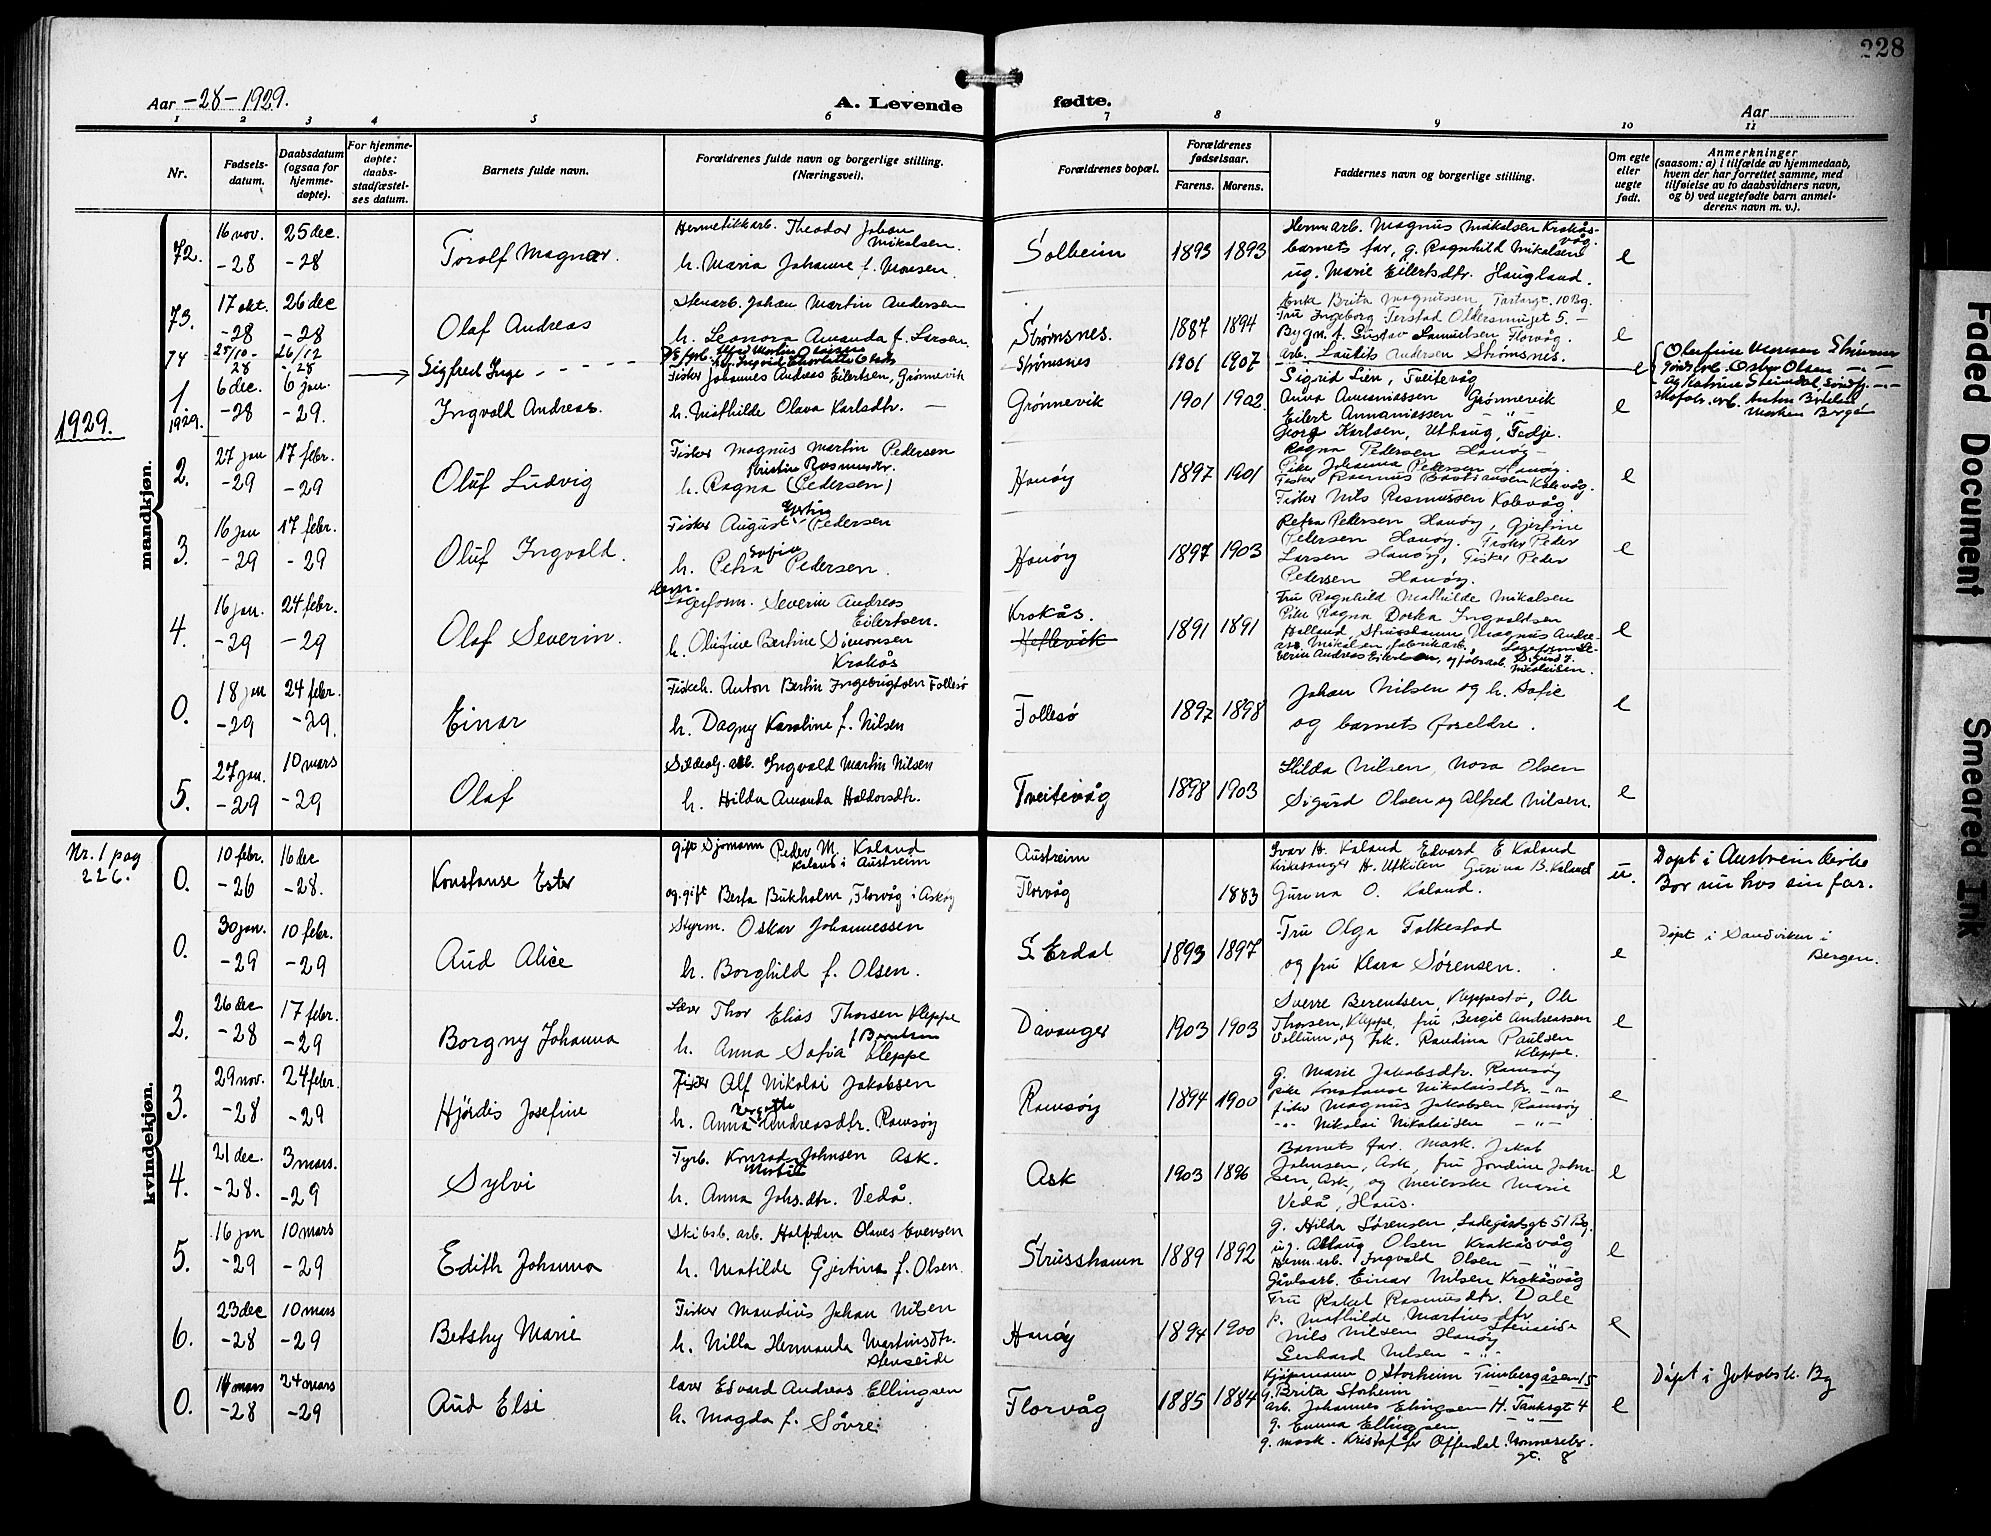 228
Aar -28-1929.
A. Levende fødte.
Aar
1 2 3 4 5 6 7 8 9 10 11
Nr.
Fødsels-
datum.
Daabsdatum
(ogsaa for
hjemme-
døpte).
For hjemme-
døpte:
daabs-
stadfæstel-
ses datum.
Barnets fulde navn.
Forældrenes fulde navn og borgerlige stilling.
(Næringsvei).
Forældrenes bopæl.
Forældrenes
fødselsaar.
Farens. Morens.
Faddernes navn og borgerlige stilling.
Om egte
eller
uegte
født.
Anmerkninger
(saasom: a) i tilfælde av hjemmedaab,
hvem der har forrettet samme, med
tilføielse av to daabsvidners navn,
og b) ved uegtefødte barn anmel-
derens navn m. v.).
mandkjøn.
72.
16 nov.
-28
25 dec.
-28
Torolf Magnar.
Hermetikkarb. Theodor Johan
Mikalsen.
h. Maria Johanne f. Monsen.
Solheim
1893 1893
Herm arb. Magnus Mikalsen Krokås-
våg.
barnets far, g. Ragnhild Mikalsen
ug. Marie Eilertsdtr. Haugland.
e
73.
17 okt.
-28
26 dec
-28
Olaf Andreas
Stenarb. Johan Martin Andersen
h. Leonora Amanda f. Larsen
Strømsnes.
1887 1894
Enke Brita Magnussen, 10 Bg.
Fru Ingeborg Terstad 5. -
Bygm. A. Gustav Samuelsen Florvåg.
arb. Laurits Andersen Strømsnes.
e
74
28/10-
28
26/12
-28
Sigfred Inge
Strømsnes
1901 1907
e
1929.
1
1929.
6 dec.
-28
6 jan.
-29.
Ingvald Andreas.
Fisker Johannes Andreas Eilertsen, Grønnevik
h. Mathilde Olava Karlsdtr. —
Grønnevik
1901 1902
Sigrid Lien, Tveitevåg
Anna Annaniassen Grønnevik
Eilert Annaniassen - " -
Georg Karlsen, Uthaug, Fedje.
e
2.
27 jan
-29
17 febr.
-29
Oluf Ludvig
Fisker Magnus Martin Pedersen
Kristine Rasmusdtr.
h. Ragna (Pedersen)
Hanøy
1897 1901
Ragna Pedersen Hanøy -
Pike Johanna Pedersen Hanøy.
Fisker Rasmus Bastiansen Kolevåg.
Fisker Nils Rasmussen Kolevåg.
e
3.
16 jan
-29
17 febr.
-29
Oluf Ingvald.
Fisker August Pedersen
Sofie
h. Petra Pedersen.
Hanøy
1897 1903
Petra Pedersen Hanøy, Gjertine
Pedersen Hanøy. Fisker Peder
Larsen Hanøy, Fisker Peder
Pedersen Hanøy.
e
4.
16 jan.
-29
24 febr.
-29
Olaf Severin.
Severin Andreas
Eilertsen.
h. Olufine Bertine Simonsen
Krokås
Krokås.
Hetlevik
1891 1891
Fru Ragnhild Mathilde Mikalsen
Pike Ragna Dorka Ingvaldsen
Holland, Strusshamn, Magnus Andre-
as Mikalsen, fabrikarb.
verin Andreas Eilertsen,
Nikolaisen.
e
0.
18 jan
-29
24 febr.
-29.
Einar
Fiskeh. Anton Bertin Ingebrigtsen Follesø
h. Dagny Karoline f. Nilsen
Follesø
1897 1898
Johan Nilsen og h. Sofie
og barnets foreldre.
e
5.
27 jan.
-29
10 mars
-29
Olaf
Sildeolj. arb. Ingvald Martin Nilsen
h. Hilda Amanda Haldorsdtr.
Tveitevåg
1898 1903
Hilda Nilsen, Nora Olsen
Sigurd Olsen og Alfred Nilsen.
e
kvindekjøn.
Nr. 1 pag
226.
0.
10 febr.
-26
16 dec
-28.
Konstanse Ester
gift Sjømann Peder M. Kaland
Kaland i Austreim
og gift Berta Bukholm, Florvåg i Askøy
Austreim
Florvåg
1883
Ivar H. Kaland Edvard E Kaland
Kirkesanger H. Utkilen Gurina B. Kaland
Gurina O. Kaland.
u.
Døpt i Austreim kirke
Bor nu hos sin far.
0.
30 jan.
-29
10 febr.
-29
Aud Alice
Styrm. Oskar Johannessen
h. Borghild f. Olsen.
S Erdal
1893 1897
Fru Olga Falkestad
og fru Klara Sørensen.
e
Døpt i Sandviken i
Bergen.
2.
26 dec
-28
17 febr.
-29
Borgny Johanna
Lærer Thor Elias Thorsen Kleppe
f Berntsen
h. Anna Sofia Kleppe
Davanger
1903 1903
Sverre Berentsen, Kleppestø, Ole
Thorsen, Kleppe, fru Bergit Andreassen
Vollum, og frk. Randina Paulsen
Kleppe.
e
3.
29 nov.
-28
24 febr.
-29
Hjørdis Josefine
Fisker Alf Nikolai Jakobsen
h. Anna Andreasdtr. Ramsøy
Ramsøy
1894 1900
g. Marie Jakobsdtr. Ramsøy
pike Konstanse Nikolaisdtr. - " -
fisker Magnus Jakobsen Ramsøy
- " - Nikolai Nikolaisen - " -
e
4.
21 dec.
-28.
3 mars.
-29
Sylvi
Fyrb. Konrad Johnsen Ask.
h. Anna Johs.dtr. Vedå.
Ask
1903 1896
Barnets far. Mask. Jakob
Johnsen, Ask, fru Jondine John-
sen, Ask, og meierske Marie
Vedå, Haus.
e
5.
16 jan
-29
10 mars
-29
Edith Johanna
Skibsb. arb. Halfdan Olaves Evensen
h. Matilde Gjertina f. Olsen.
Strusshamn
1889 1892
g. Hilda Sørensen, Ladegårdsgt 51 Bg.
ug. Aslaug Olsen Krokåsvåg
Herm. arb. Ingvald Olsen - " -
Einar Nilsen Krokåsvåg
e
6.
23 dec
-28
10 mars
-29
Betsky Marie
Fisker Mandius Johan Nilsen
h. Nilla Hermanda Martinsdtr.
Stenseide
Hanøy
1894 1900
Fru Rakel Rasmusdtr. Dale
p. Mathilde Martinsdtr.
Stenseide
Nils Nilsen Hanøy
Gerhard Nilsen - " -
e
0.
14 mars
-28
24 mars
-29
Aud Elsi
lærer Edvard Andreas Ellingsen
h. Magda f. Søvre
Florvåg
1885 1884
Kjøpmann O. Storheim Tinbergåsen 15
g. Brita Storheim
arb. Johannes Elingsen H. Tanksgt 4
g. Emma Ellingsen
g. mask. Kristoffer Offerdal. Nonneseter
gt. 8
e
Døpt i Jakobsk. Bg
Faded Document
Smeared Ink